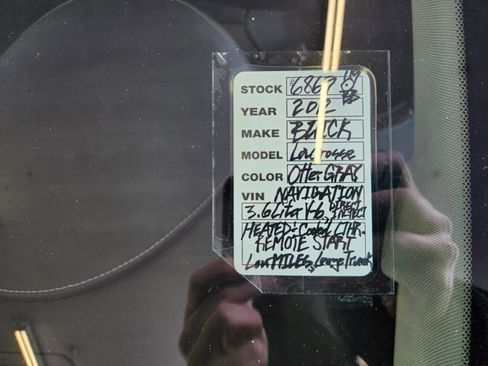 STOCK #6862
YEAR 2012
MAKE BUICK
MODEL Lacrosse
COLOR Otter GRAY
VIN NAVIGATION
3.6 Liter V-6, DIRECT INJECT
HEATED - Cooled LTHR.
REMOTE START
Low MILES, Large Trunk